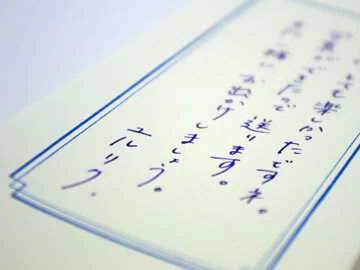 とても楽しかったですネ。
写真ができたので送ります。
またご一緒にお出かけ
しましょう。
ユルリク、